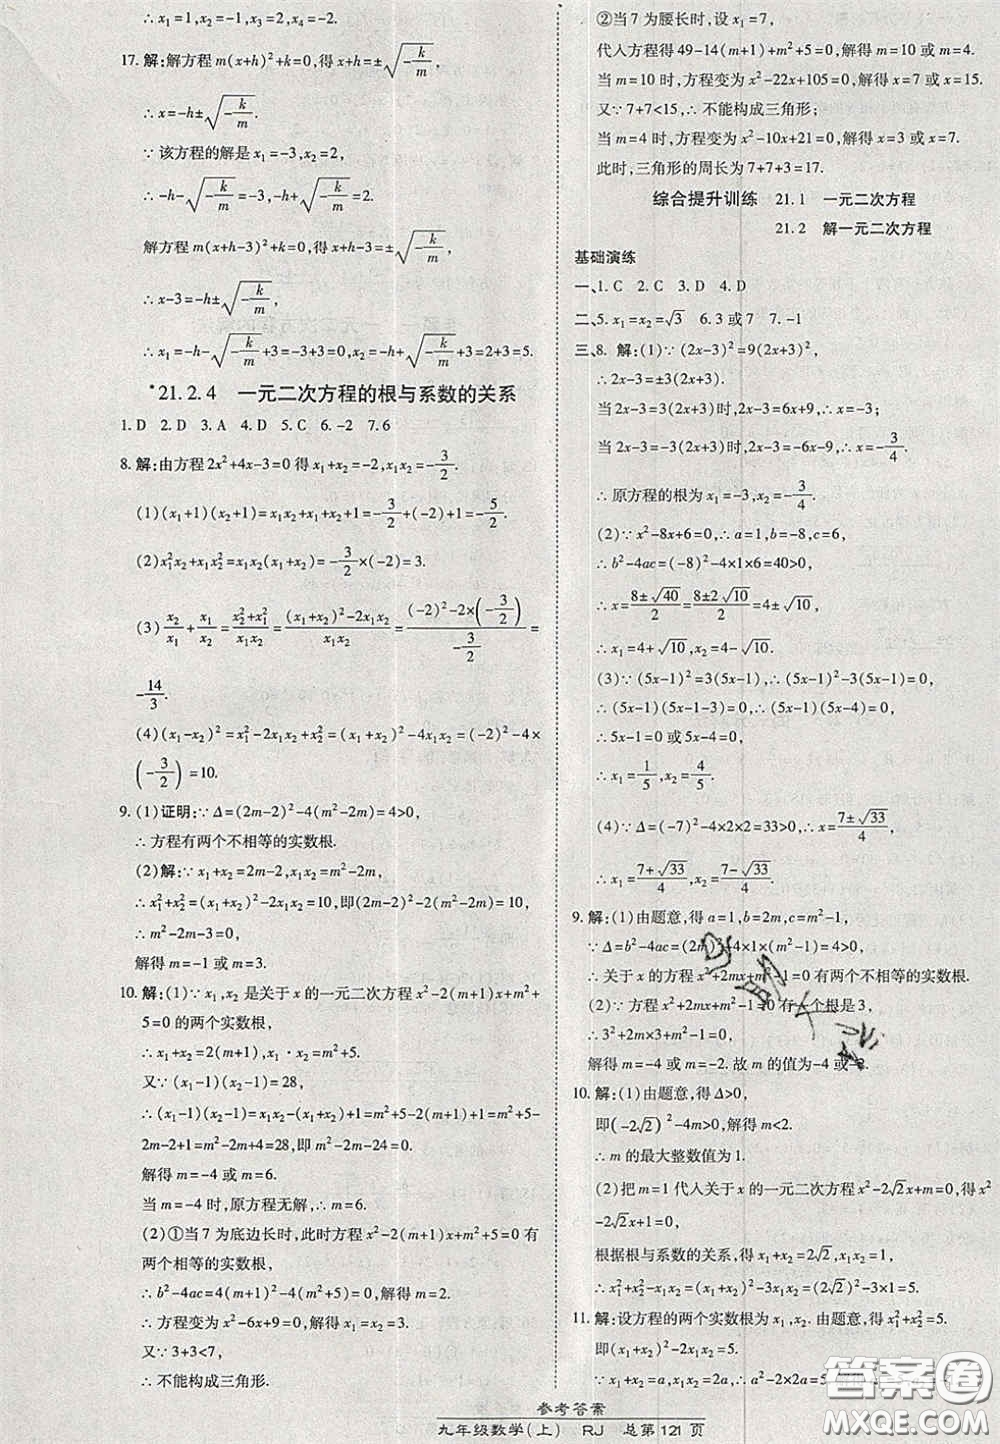 ∴x₁=1,x₂=-1,x₃=2,x₄=-2.
17. 解:解方程 m(x+h)²+k=0,得 x+h=±√(-k/m)
∴x=-h±√(-k/m).
∵该方程的解是 x₁=-3,x₂=2,
∴-h-√(-k/m)=-3,-h+√(-k/m)=2,
解方程 m(x+h-3)²+k=0,得 x+h-3=±√(-k/m),
∴x-3=-h±√(-k/m),
∴x₁=-h-√(-k/m)+3=-3+3=0,x₂=-h+√(-k/m)+3=2+3=5.
*21.2.4 一元二次方程的根与系数的关系
1. D 2. D 3. A 4. D 5. C 6. -2 7. 6
8. 解:由方程 2x²+4x-3=0 得 x₁+x₂=-2,x₁x₂=-3/2.
(1)(x₁+1)(x₂+1)=x₁x₂+x₁+x₂+1=-3/2+(-2)+1=-5/2.
(2)x₁²x₂+x₁x₂²=x₁x₂(x₁+x₂)=-3/2×(-2)=3.
(3)x₂/x₁+x₁/x₂=(x₂²+x₁²)/(x₁x₂)=((x₁+x₂)²-2x₁x₂)/(x₁x₂)=((-2)²-2×(-3/2))/(-3/2)=
-14/3.
(4)(x₁-x₂)²=x₁²-2x₁x₂+x₂²=(x₁+x₂)²-4x₁x₂=(-2)²-4×
(-3/2)=10.
9. (1)证明:∵Δ=(2m-2)²-4(m²-2m)=4>0,
∴方程有两个不相等的实数根.
(2)解:∵x₁+x₂=2m-2,x₁x₂=m²-2m,
∴x₁²+x₂²=(x₁+x₂)²-2x₁x₂=10,即(2m-2)²-2(m²-2m)=10,
∴m²-2m-3=0,
解得 m=-1 或 m=3.
10. 解:(1)∵x₁,x₂ 是关于 x 的一元二次方程 x²-2(m+1)x+m²+
5=0 的两个实数根,
∴x₁+x₂=2(m+1),x₁·x₂=m²+5.
又∵(x₁-1)(x₂-1)=28,
∴(x₁-1)(x₂-1)=x₁x₂-(x₁+x₂)+1=m²+5-2(m+1)+1=m²+5-
2m-2+1=m²-2m+4=28,即 m²-2m-24=0.
解得 m=-4 或 m=6.
当 m=-4 时,原方程无解,∴m=6.
(2)①当 7 为底边长时,此时方程 x²-2(m+1)x+m²+5=0 有
两个相等的实数根,
∴b²-4ac=4(m+1)²-4(m²+5)=0,解得 m=2.
∴方程变为 x²-6x+9=0,解得 x₁=x₂=3.
又∵3+3<7,
∴不能构成三角形.
②当 7 为腰长时,设 x₁=7,
代入方程得 49-14(m+1)+m²+5=0,解得 m=10 或 m=4.
当 m=10 时,方程变为 x²-22x+105=0,解得 x=7 或 x=15.
又∵7+7<15,∴不能构成三角形;
当 m=4 时,方程变为 x²-10x+21=0,解得 x=3 或 x=7.
此时,三角形的周长为 7+7+3=17.
综合提升训练 21.1 一元二次方程
21.2 解一元二次方程
基础演练
一、1. C 2. C 3. D 4. D
二、5. x₁=x₂=√3 6. 3 或 7 7. -1
三、8. 解:(1)∵(2x-3)²=9(2x+3)²,
∴2x-3=±3(2x+3).
当 2x-3=3(2x+3)时,2x-3=6x+9,∴x=-3.
当 2x-3=-3(2x+3)时,2x-3=-6x-9,∴x=-3/4.
∴原方程的根为 x₁=-3,x₂=-3/4.
(2)∵x²-8x+6=0,∴a=1,b=-8,c=6,
∴b²-4ac=(-8)²-4×1×6=40>0,
∴x=(8±√40)/2=(8±2√10)/2=4±√10,
∴x₁=4+√10,x₂=4-√10.
(3)∵(5x-1)²=3(5x-1),∴(5x-1)²-3(5x-1)=0,
∴(5x-1)(5x-1-3)=0,∴(5x-1)(5x-4)=0,
∴5x-1=0 或 5x-4=0,
∴x₁=1/5,x₂=4/5.
(4)∵Δ=(-7)²-4×2×2=33>0,∴x=(7±√33)/4,
∴x₁=(7+√33)/4,x₂=(7-√33)/4.
9. 解:(1)由题意,得 a=1,b=2m,c=m²-1,
∵Δ=b²-4ac=(2m)²-4×1×(m²-1)=4>0,
∴关于 x 的方程 x²+2mx+m²-1=0 有两个不相等的实数根.
(2)∵方程 x²+2mx+m²-1=0 有一个根是 3,
∴3²+2m×3+m²-1=0,
解得 m=-4 或 m=-2. 故 m 的值为-4 或-2.
10. 解:(1)由题意,得 Δ>0,
即(-2√2)²-4m>0,解得 m<2.
∴m 的最大整数值为 1.
(2)把 m=1 代入关于 x 的一元二次方程 x²-2√2x+m=0,得 x²
-2√2x+1=0,
根据根与系数的关系,得 x₁+x₂=2√2,x₁x₂=1,
∴x₁²+x₂²-x₁x₂=(x₁+x₂)²-3x₁x₂=(2√2)²-3×1=5.
11. 解:设方程的两个实数根为 x₁,x₂. 由题意,得 x₁²+x₂²=5.
即(x₁+x₂)²-2x₁x₂=5.
∵x₁+x₂=a,x₁x₂=2a,∴a²-2×2a=5
答案圈
MXQE.COM
参考答案
九年级数学(上) RJ 总第 121 页